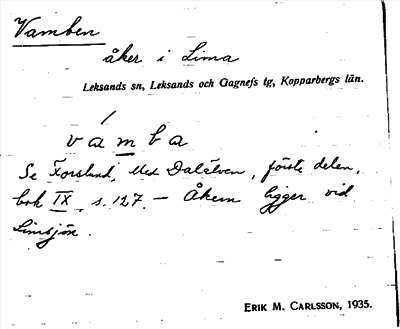 Vamben
åker i Lima
Leksands sn, Leksands och Gagnefs tg, Kopparbergs län.
vámba
Se Forslund, Med Dalälven, förste delen,
bok IX, s. 127. — Åkern ligger vid
Limsjön.
ERIK M. CARLSSON, 1935.